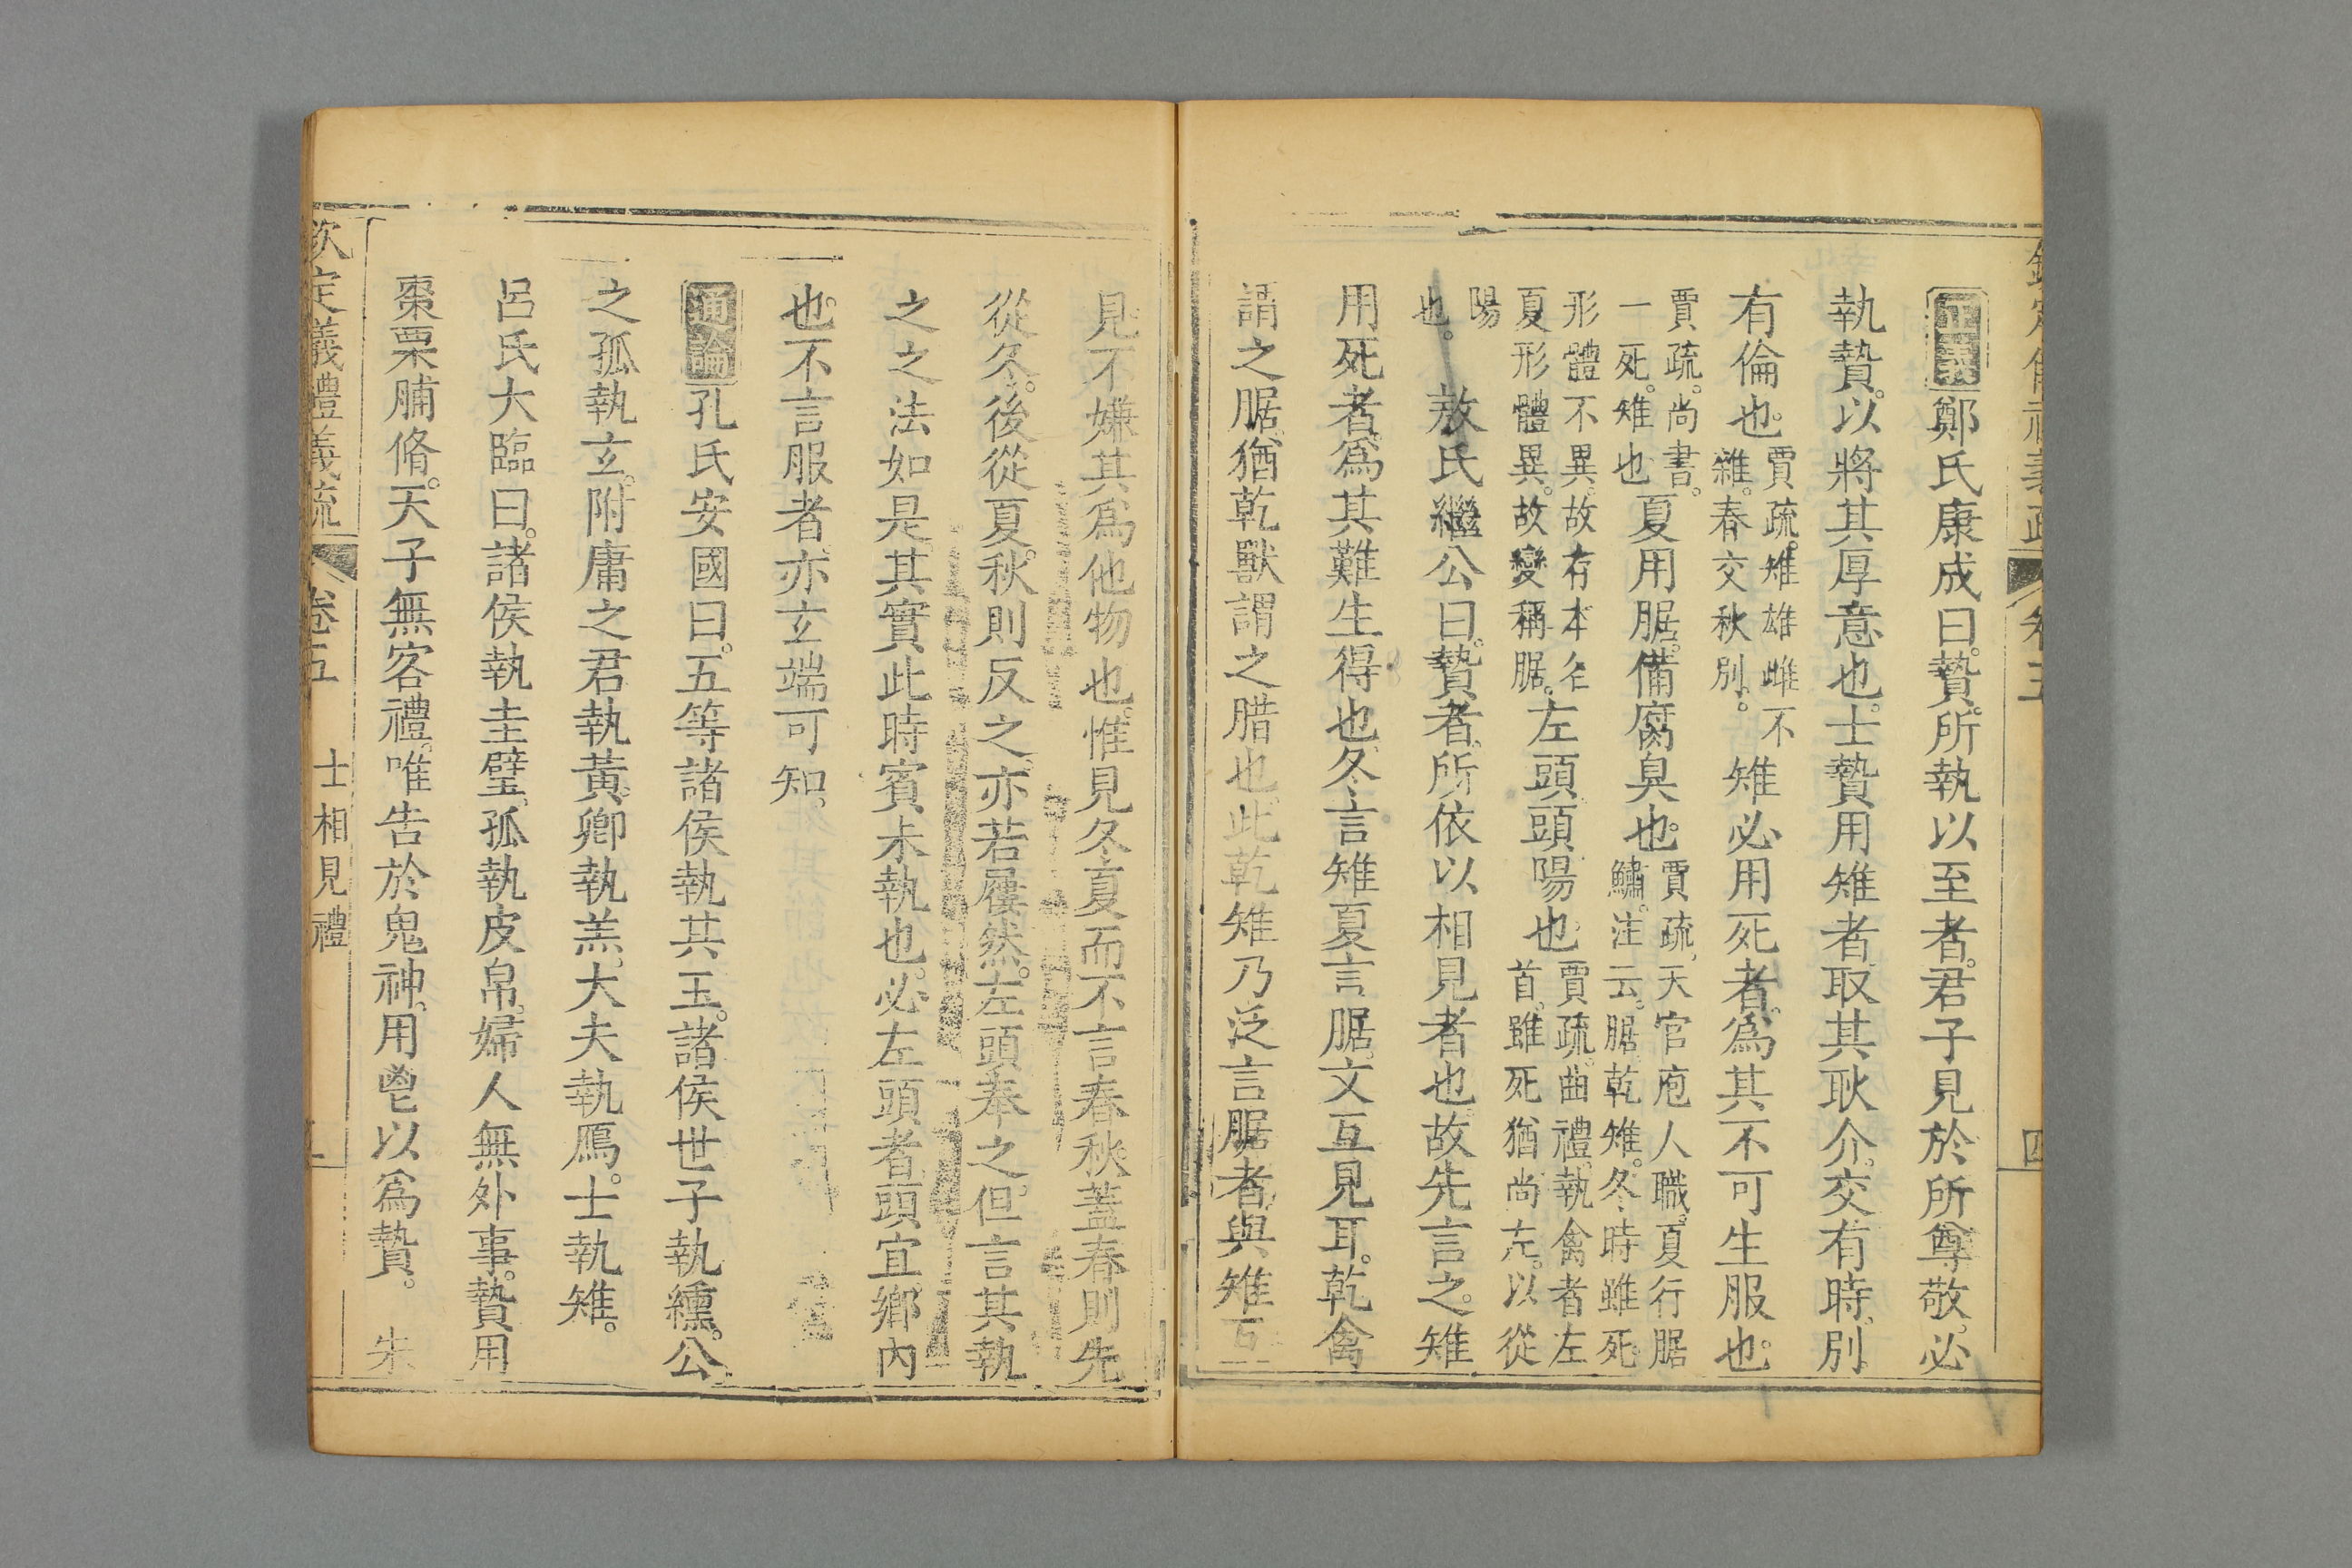 正義鄭氏康成曰。贄。所執以至者。君子見於所尊敬。必
執贄。以將其厚意也。士贄用雉者。取其耿介。交有時。別
有倫也。賈疏。雉雄雌不雜。春交秋別。雉必用死者。爲其不可生服也。
賈疏。尚書。一死。雉也夏用腒。備腐臭也。賈疏。天官庖人職。夏行腒鱐。注云。腒。乾雉。冬時雖死。
形體不異。故存本名夏形體異。故變稱腒。左頭。頭。陽也。賈疏。曲禮。執禽者左首。雖死猶尚左。以從
陽也。敖氏繼公曰。贄者。所依以相見者也。故先言之。雉
用死者。爲其難生得也。冬言雉夏言腒。文互見耳。乾禽
謂之腒。猶乾獸謂之腊也。此乾雉乃泛言腒者。與雉互
見。不嫌其爲他物也。惟見冬夏而不言春秋。蓋春則先
從冬。後從夏。秋則反之。亦若屨然。左頭奉之。但言其執
之之法如是。其實此時賓未執也。必左頭者。頭宜鄉內
也。不言服者。亦玄端可知。
通論孔氏安國曰。五等諸侯執其玉。諸侯世子執纁。公
之孤執玄。附庸之君執黃。卿執羔。大夫執鴈。士執雉。
呂氏大臨曰。諸侯執圭璧。孤執皮帛。婦人無外事。贄用
棗栗腶脩。天子無客禮。唯告於鬼神。用鬯以爲贄。 朱
欽定儀禮義疏 卷五 士相見禮